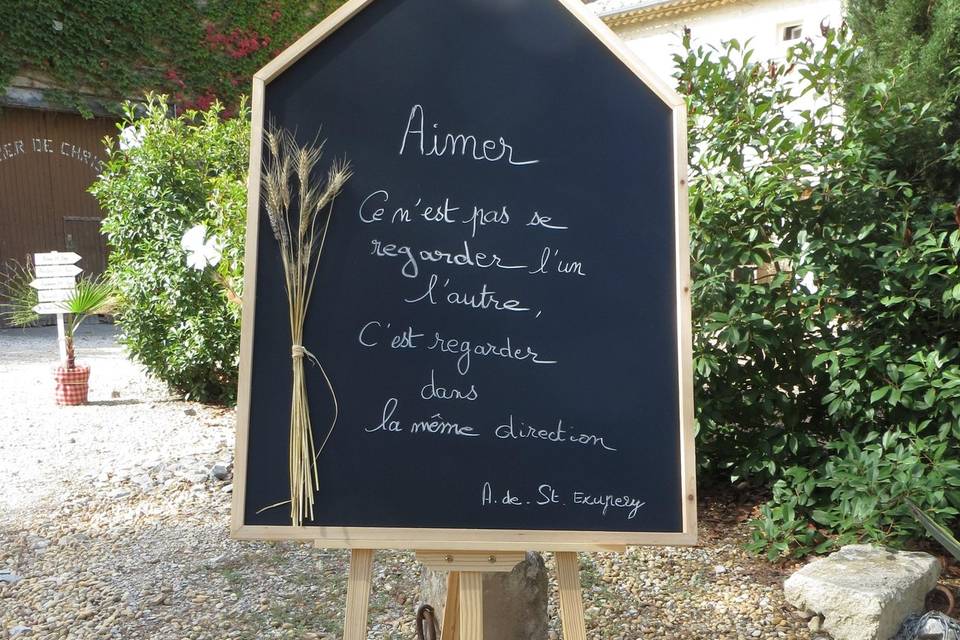 Aimer
Ce n'est pas se
regarder l'un
l'autre,
C'est regarder
dans
la même direction
A. de. St. Exupery
DE